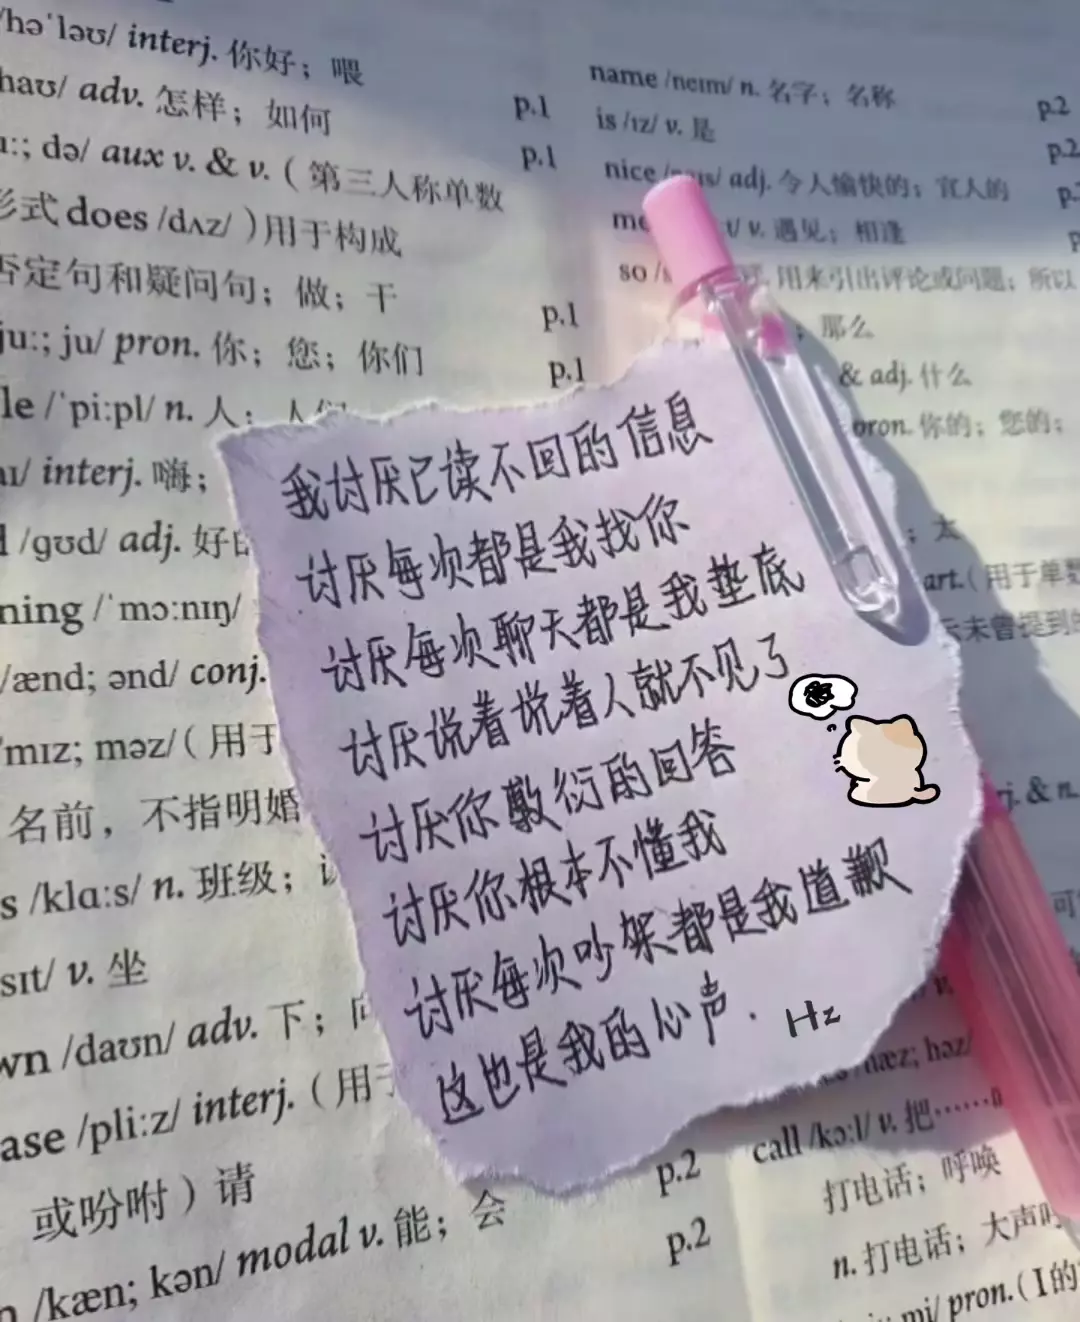 /hə'ləʊ/ interj. 你好；喂
haʊ/ adv. 怎样；如何
p.1
uː; də/ aux v. & v.（第三人称单数
p.1
形式 does /dʌz/ )用于构成
否定句和疑问句；做；干
p.1
juː; ju/ pron. 你；您；你们
p.1
le /'piːpl/ n. 人；人们
aɪ/ interj. 嗨；
/ɡʊd/ adj. 好
ning /'mɔːnɪŋ/
/ænd; ənd/ conj.
'mɪz; məz/（用于
名前，不指明婚
s /klɑːs/ n. 班级；
sɪt/ v. 坐
wn /daʊn/ adv. 下；向
ase /pliːz/ interj.（用于
或吩咐）请
p.2
/kæn; kən/ modal v. 能；会
p.2
name /neɪm/ n. 名字；名称
p.2
is /ɪz/ v. 是
p.2
nice /naɪs/ adj. 令人愉快的；宜人的
p.
me t/ v. 遇见；相逢
p
so /s 用来引出评论或问题；所以
；那么
& adj. 什么
pron. 你的；您的；
；太
art.（用于单数
未曾提到的
我讨厌已读不回的信息
讨厌每次都是我找你
讨厌每次聊天都是我垫底
讨厌说着说着人就不见了
讨厌你敷衍的回答
讨厌你根本不懂我
讨厌每次吵架都是我道歉
这也是我的心声. Hz
j. & n.
可
/hæz; həz/
call /kɔːl/ v. 把……叫
打电话；呼唤
n. 打电话；大声叫
mi/ pron.（I的